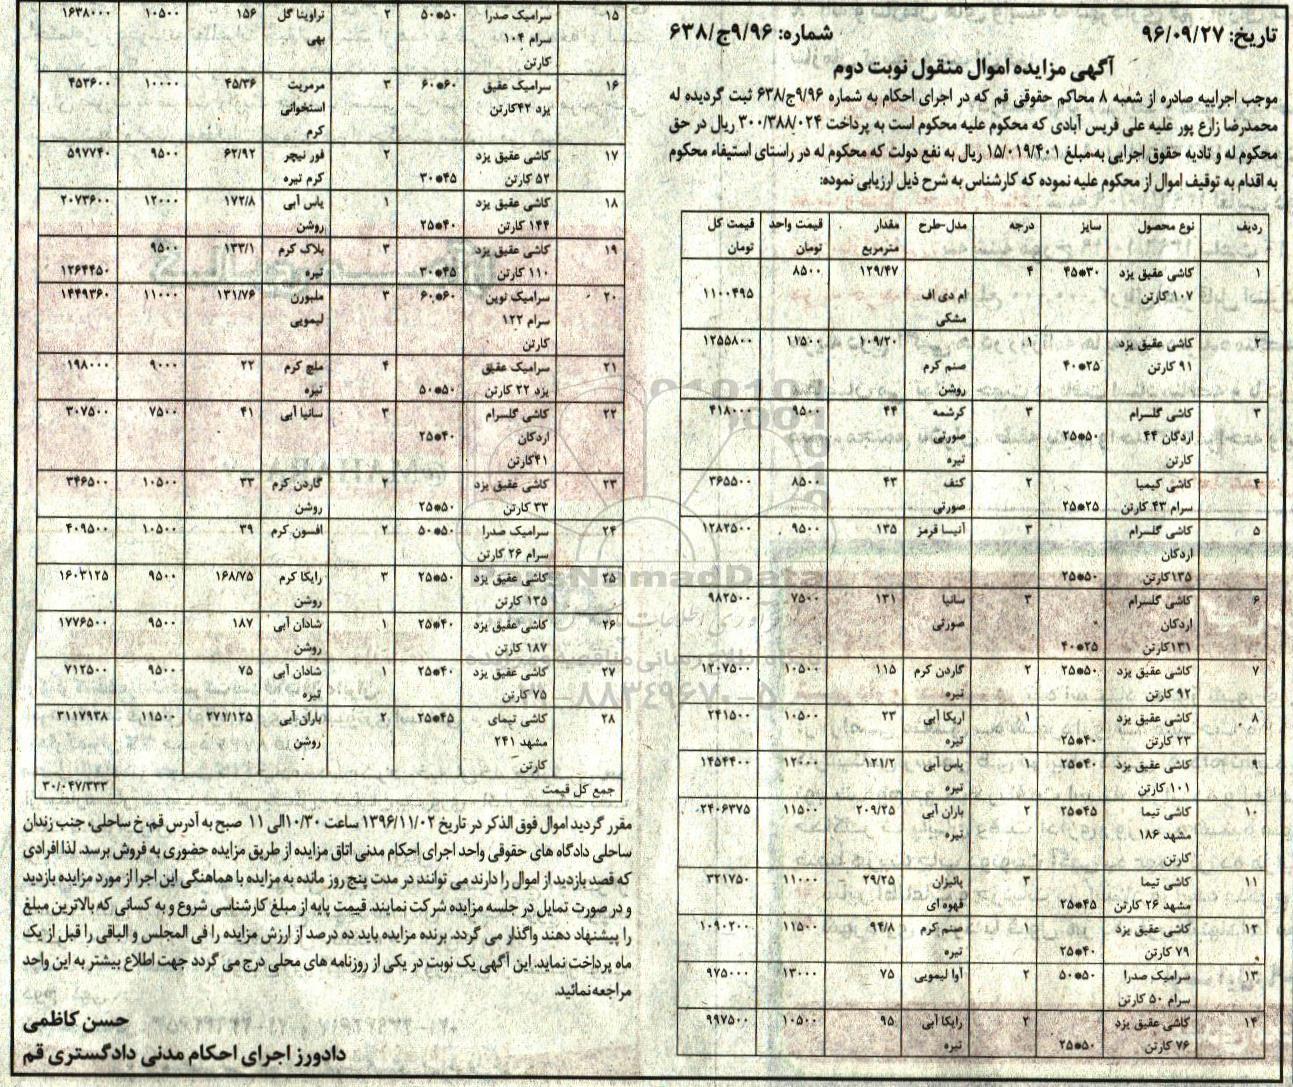 تاریخ: ۹۶/۰۹/۲۷ شماره: ۹/۹۶ج/۶۳۸
آگهی مزایده اموال منقول نوبت دوم
موجب اجراییه صادره از شعبه ۸ محاکم حقوقی قم که در اجرای احکام به شماره ۹/۹۶ج/۶۳۸ ثبت گردیده له
محمدرضا زارع پور علیه علی فریس آبادی که محکوم علیه محکوم است به پرداخت ۳۰۰/۳۸۸/۰۲۴ ریال در حق
محکوم له و تادیه حقوق اجرایی به مبلغ ۱۵/۰۱۹/۴۰۱ ریال به نفع دولت که محکوم له در راستای استیفاء محکوم
به اقدام به توقیف اموال از محکوم علیه نموده که کارشناس به شرح ذیل ارزیابی نموده:
ردیف نوع محصول سایز درجه مدل-طرح مقدار قیمت واحد قیمت کل
مترمربع تومان تومان
۱ کاشی عقیق یزد ۳۰*۴۵ ۴ ۱۲۹/۴۷ ۸۵۰۰
۱۰۷ کارتن ام دی اف ۱۱۰۰۴۹۵
مشکی
۲ کاشی عقیق یزد ۱ ۱۰۹/۲۰ ۱۱۵۰۰ ۱۲۵۵۸۰۰
۹۱ کارتن ۲۵*۴۰ صنم کرم
روشن
۳ کاشی گلسرام ۳ کرشمه ۴۴ ۹۵۰۰ ۴۱۸۰۰۰
اردکان ۴۴ ۵۰*۲۵ صورتی
کارتن تیره
۴ کاشی کیمیا ۲ کنف ۴۳ ۸۵۰۰ ۳۶۵۵۰۰
سرام ۴۳ کارتن ۲۵*۲۵ صورتی
۵ کاشی گلسرام ۳ آنیسا قرمز ۱۳۵ ۹۵۰۰ ۱۲۸۲۵۰۰
اردکان
۱۳۵کارتن ۵۰*۲۵
۶ کاشی گلسرام ۳ سانیا ۱۳۱ ۷۵۰۰ ۹۸۲۵۰۰
اردکان صورتی
۱۳۱کارتن ۲۵*۴۰
۷ کاشی عقیق یزد ۵۰*۲۵ ۲ گاردن کرم ۱۱۵ ۱۰۵۰۰ ۱۲۰۷۵۰۰
۹۲ کارتن تیره
۸ کاشی عقیق یزد ۱ اریکا آبی ۲۳ ۱۰۵۰۰ ۲۴۱۵۰۰
۲۳ کارتن ۴۰*۲۵ تیره
۹ کاشی عقیق یزد ۴۰*۲۵ ۱ یاس آبی ۱۲۱/۲ ۱۲۰۰۰ ۱۴۵۴۴۰۰
۱۰۱ کارتن تیره
۱۰ کاشی تیما ۴۵*۲۵ ۲ باران آبی ۲۰۹/۲۵ ۱۱۵۰۰ ۲۴۰۶۳۷۵
مشهد ۱۸۶ تیره
کارتن
۱۱ کاشی تیما ۳ پائیزان ۲۹/۲۵ ۱۱۰۰۰ ۳۲۱۷۵۰
مشهد ۲۶ کارتن ۴۵*۲۵ قهوه ای
۱۲ کاشی عقیق یزد صنم کرم ۹۴/۸ ۱۱۵۰۰ ۱۰۹۰۲۰۰
۷۹ کارتن ۴۰*۲۵ تیره
۱۳ سرامیک صدرا ۵۰*۵۰ ۲ آوا لیمویی ۷۵ ۱۳۰۰۰ ۹۷۵۰۰۰
سرام ۵۰ کارتن
۱۴ کاشی عقیق یزد ۲ رایکا آبی ۹۵ ۱۰۵۰۰ ۹۹۷۵۰۰
۷۶ کارتن ۵۰*۲۵ تیره
۱۵ سرامیک صدرا ۵۰*۵۰ ۲ تراوینا گل ۱۵۶ ۱۰۵۰۰ ۱۶۳۸۰۰۰
سرام ۱۰۴ بهی
کارتن
۱۶ سرامیک عقیق ۶۰*۶۰ ۳ مرمریت ۴۵/۳۶ ۱۰۰۰۰ ۴۵۳۶۰۰
یزد ۴۲کارتن استخوانی
کرم
۱۷ کاشی عقیق یزد ۲ فور نیچر ۶۲/۹۲ ۹۵۰۰ ۵۹۷۷۴۰
۵۲ کارتن ۴۵*۳۰ کرم تیره
۱۸ کاشی عقیق یزد ۱ یاس آبی ۱۷۲/۸ ۱۲۰۰۰ ۲۰۷۳۶۰۰
۱۴۴ کارتن ۴۰*۲۵ روشن
۱۹ کاشی عقیق یزد ۳ بلاک کرم ۱۳۳/۱ ۹۵۰۰
۱۱۰ کارتن ۴۵*۳۰ تیره ۱۲۶۴۴۵۰
۲۰ سرامیک نوین ۶۰*۶۰ ۳ ملبورن ۱۳۱/۷۶ ۱۱۰۰۰ ۱۴۴۹۳۶۰
سرام ۱۲۲ لیمویی
کارتن
۲۱ سرامیک عقیق ۴ ملچ کرم ۲۲ ۹۰۰۰ ۱۹۸۰۰۰
یزد ۲۲ کارتن ۵۰*۵۰ تیره
۲۲ کاشی گلسرام ۳ سانیا آبی ۴۱ ۷۵۰۰ ۳۰۷۵۰۰
اردکان ۴۰*۲۵
۴۱کارتن
۲۳ کاشی عقیق یزد ۲ گاردن کرم ۳۳ ۱۰۵۰۰ ۳۴۶۵۰۰
۳۳ کارتن ۵۰*۲۵ روشن
۲۴ سرامیک صدرا ۵۰*۵۰ ۲ افسون کرم ۳۹ ۱۰۵۰۰ ۴۰۹۵۰۰
سرام ۲۶ کارتن
۲۵ کاشی عقیق یزد ۵۰*۲۵ ۳ رایکا کرم ۱۶۸/۷۵ ۹۵۰۰ ۱۶۰۳۱۲۵
۱۳۵ کارتن روشن
۲۶ کاشی عقیق یزد ۴۰*۲۵ ۱ شادان آبی ۱۸۷ ۹۵۰۰ ۱۷۷۶۵۰۰
۱۸۷ کارتن روشن
۲۷ کاشی عقیق یزد ۴۰*۲۵ ۱ شادان آبی ۷۵ ۹۵۰۰ ۷۱۲۵۰۰
۷۵ کارتن تیره
۲۸ کاشی تیمای ۴۵*۲۵ ۲ باران آبی ۲۷۱/۱۲۵ ۱۱۵۰۰ ۳۱۱۷۹۳۸
مشهد ۲۴۱ روشن
کارتن
جمع کل قیمت ۳۰/۰۴۷/۳۳۳
مقرر گردید اموال فوق الذکر در تاریخ ۱۳۹۶/۱۱/۰۲ ساعت ۱۰/۳۰الی ۱۱ صبح به آدرس قم، خ ساحلی، جنب زندان
ساحلی دادگاه های حقوقی واحد اجرای احکام مدنی اتاق مزایده از طریق مزایده حضوری به فروش برسد. لذا افرادی
که قصد بازدید از اموال را دارند می توانند در مدت پنج روز مانده به مزایده با هماهنگی این اجرا از مورد مزایده بازدید
و در صورت تمایل در جلسه مزایده شرکت نمایند. قیمت پایه از مبلغ کارشناسی شروع و به کسانی که بالاترین مبلغ
را پیشنهاد دهند واگذار می گردد. برنده مزایده باید ده درصد از ارزش مزایده را فی المجلس و الباقی را قبل از یک
ماه پرداخت نماید. این آگهی یک نوبت در یکی از روزنامه های محلی درج می گردد جهت اطلاع بیشتر به این واحد
مراجعه نمائید.
حسن کاظمی
دادورز اجرای احکام مدنی دادگستری قم